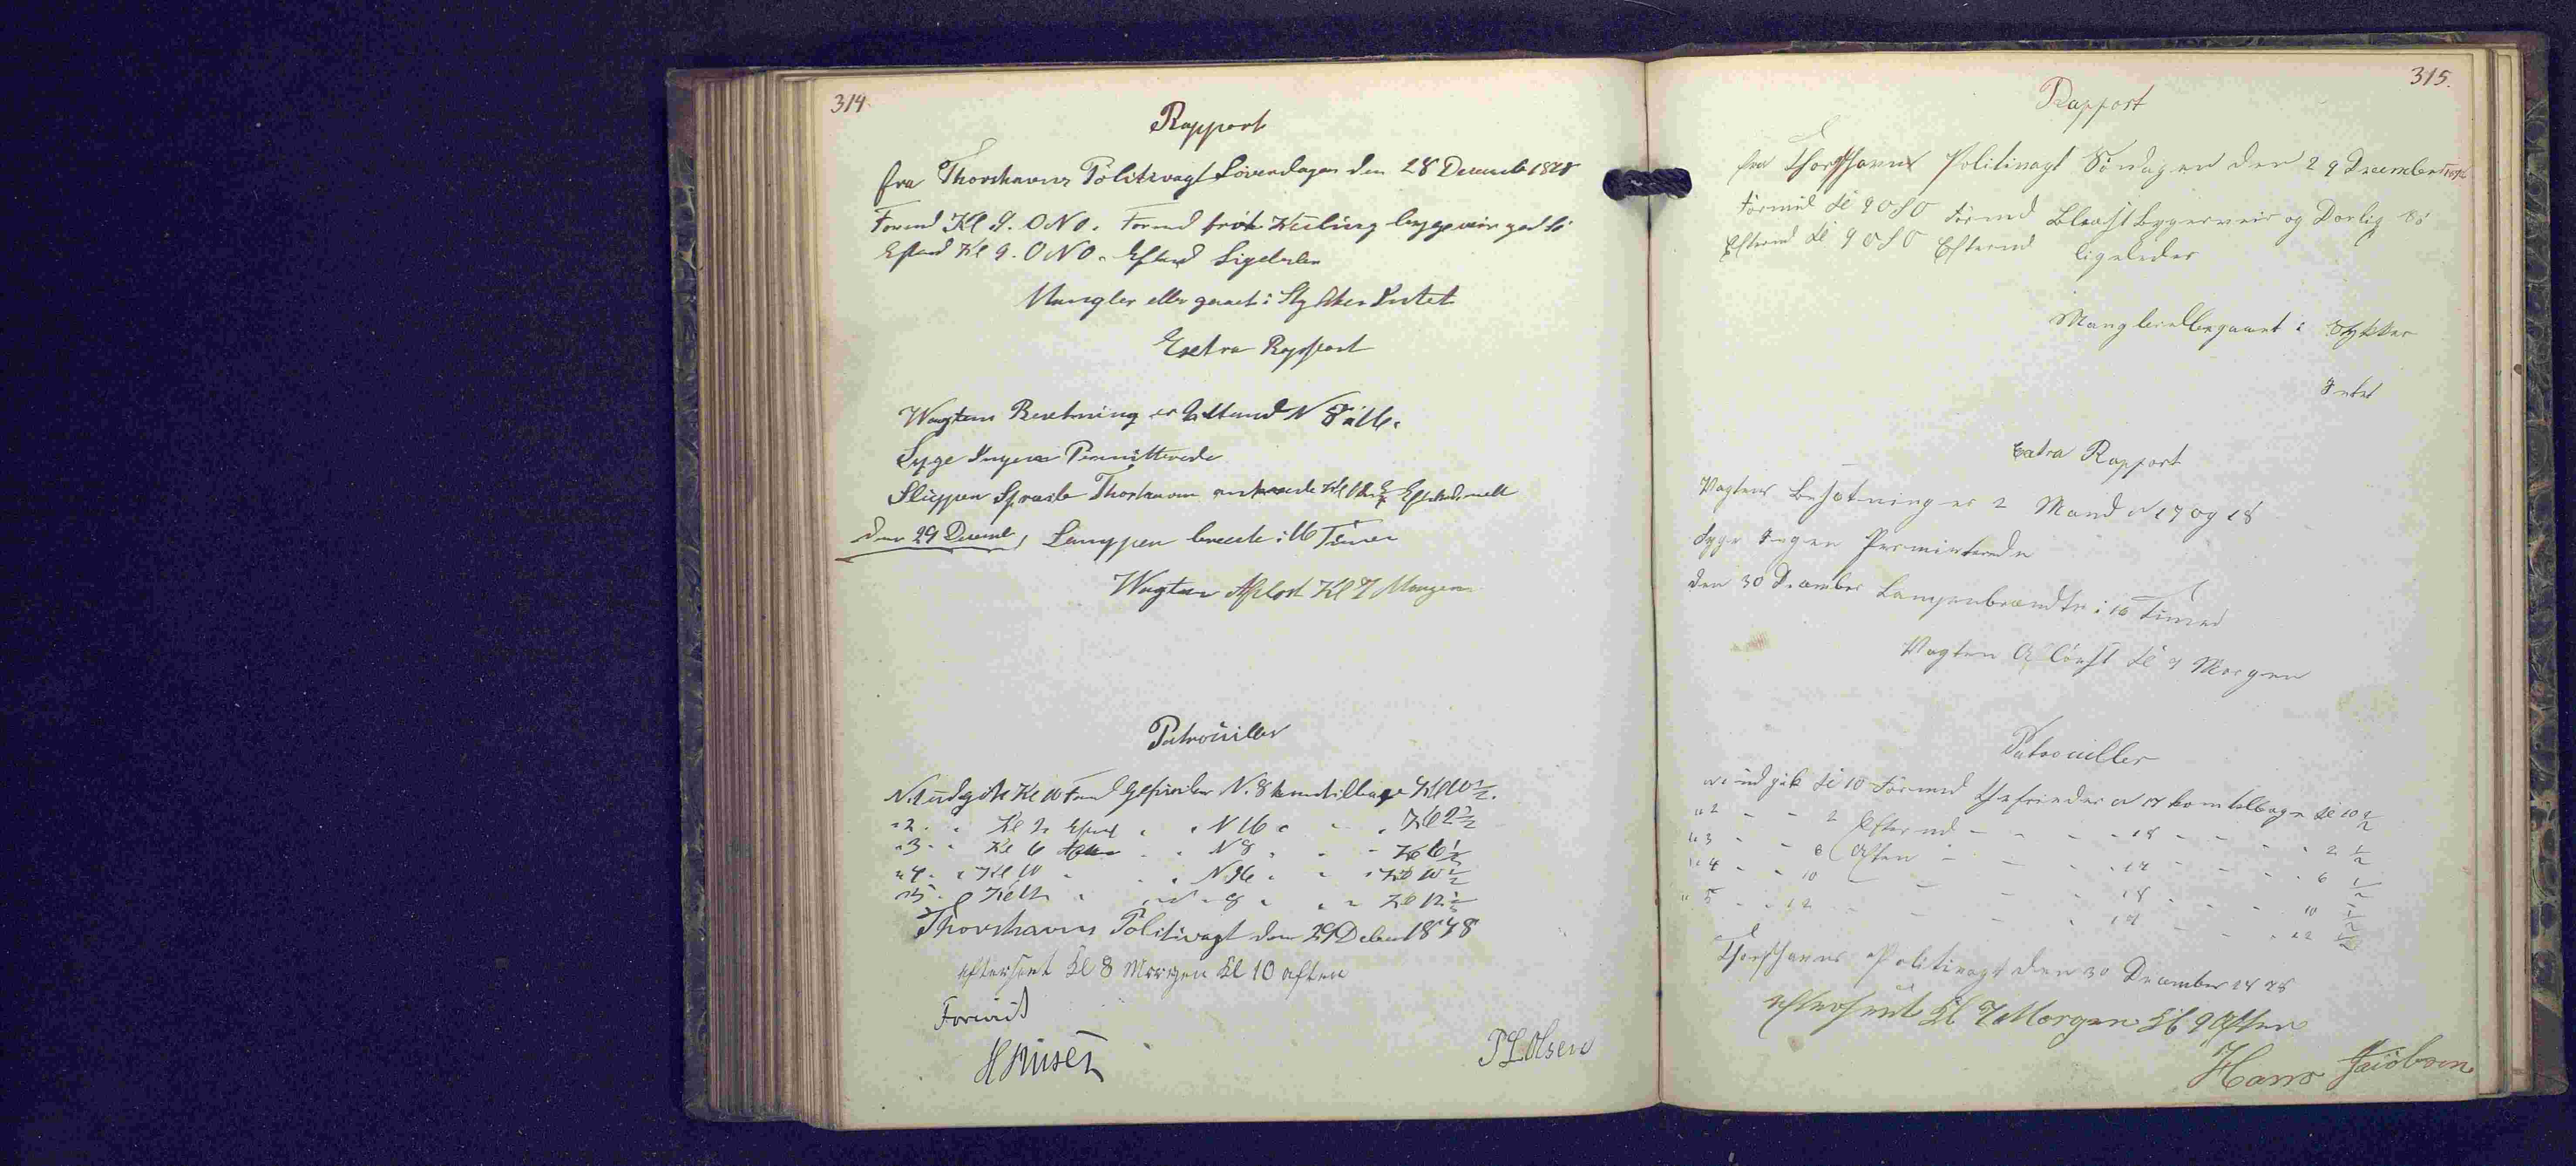 314.
Rapport
fra Thorshavns Politivagt Löverdagen den 28 Decemb 1878
Formd Kl 9. ONO. Formd frisk Kuling byggeveir god Sö
Eftmd Kl 9. ONO. Eftmd Ligeledes
Mangler eller gaaet i Stykker Intet
Exstra Rapport
Wagtens Besetning er 2 Mand N 8 &
Syge Ingen Permitterede
Sluppen Thorshavn Kl Eftermd
den 29 Decemb, Lamppen brente i 16 Timer
Wagten Aflöst Kl 7 Morgen
Patrouiller
N. 1 udgik Kl 10 Formd Gefreider N. 8 kom tilbage Kl 10 1/2.
" 2. " Kl 2 Eftmd " " N 16 " " " Kl 2 1/2
" 3. " Kl 6 Aften " " N 8 " " " Kl 6 1/2
" 4. " Kl 10 " " " N 16 " " " Kl 10 1/2
" 5. " Kl 12 " " " 8 " " " Kl 12 1/2
Thorshavns Politivagt den 29 Decbm 1878
efterseet Kl 8 Morgen Kl 10 aften
P L Olsen
315.
Rapport
fra Thorshavns Politivagt Söndagen den 29 December 1878
Formd Kl 9 OSO Formd Blæst Bygerveir og Dorlig Sö
Eftermd Kl 9 OSO Eftermd ligeledes
Mangler ellergaaet i Stykker
Intet
Extra Rapport
Vagtens Besætning er 2 Mand N 17 og 18
Syge Ingen Perminterede
den 30 December Lampenbrændte i 16 Timer
Vagten Aflöest Kl 7 Morgen
Patrouiller
N 1 udgik Kl 10 Formd Gefreider N 17 kom tilbage Kl 10 1/2
" 2 - - 2 Eftermd - - - 18 - - - 2 1/2
" 3 - - 6 Aften - - - 17 - - - 6 1/2
" 4 - - 10 - - - 18 - - - 10 1/2
" 5 - - 12 - - - 17 - - - 12 1/2
Thorshavns Politivagt den 30 December 1878
efterseet Kl 7 Morgen Kl 9 Aften
Hans Jacobsen